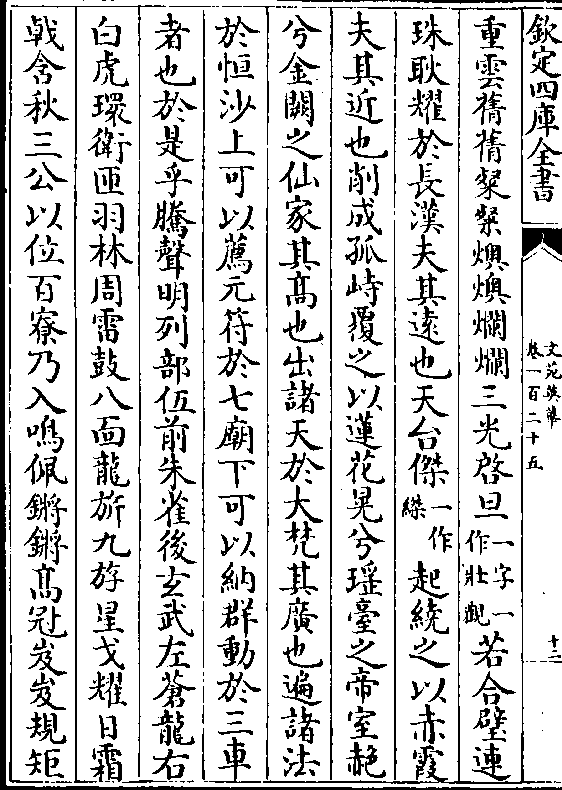 欽定四庫全書
文苑英華
卷一百二十五
十二
重雲蒨蒨粲粲燠燠爛爛三光啓旦一字一作壯觀若合璧連
珠耿耀於長漢夫其遠也天台傑一作起繞之以赤霞
夫其近也削成孤峙覆之以蓮花晃兮瑶臺之帝室赩
兮金闕之仙家其髙也出諸天於大梵其廣也遍諸法
於恒沙上可以薦元符於七廟下可以納群動於三車
者也於是乎騰聲明列部伍前朱雀後玄武左蒼龍右
白虎環衛匝羽林周雷鼓八面龍旂九斿星戈耀日霜
戟含秋三公以位百寮乃入鳴佩鏘鏘髙冠岌岌規矩